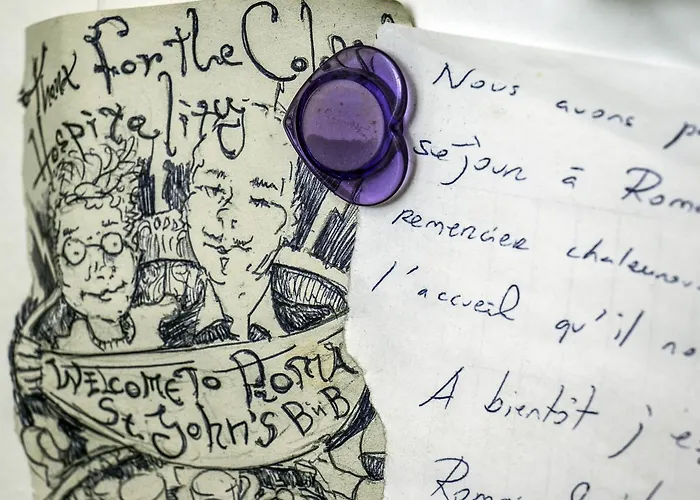 Thanx for the Cole
Hospitality
WELCOME TO ROMA
St. John's BnB
Nous avons p
séjour à Rom
remercier chaleureu
l'accueil qu'il ne
A bientôt j'es
Rom